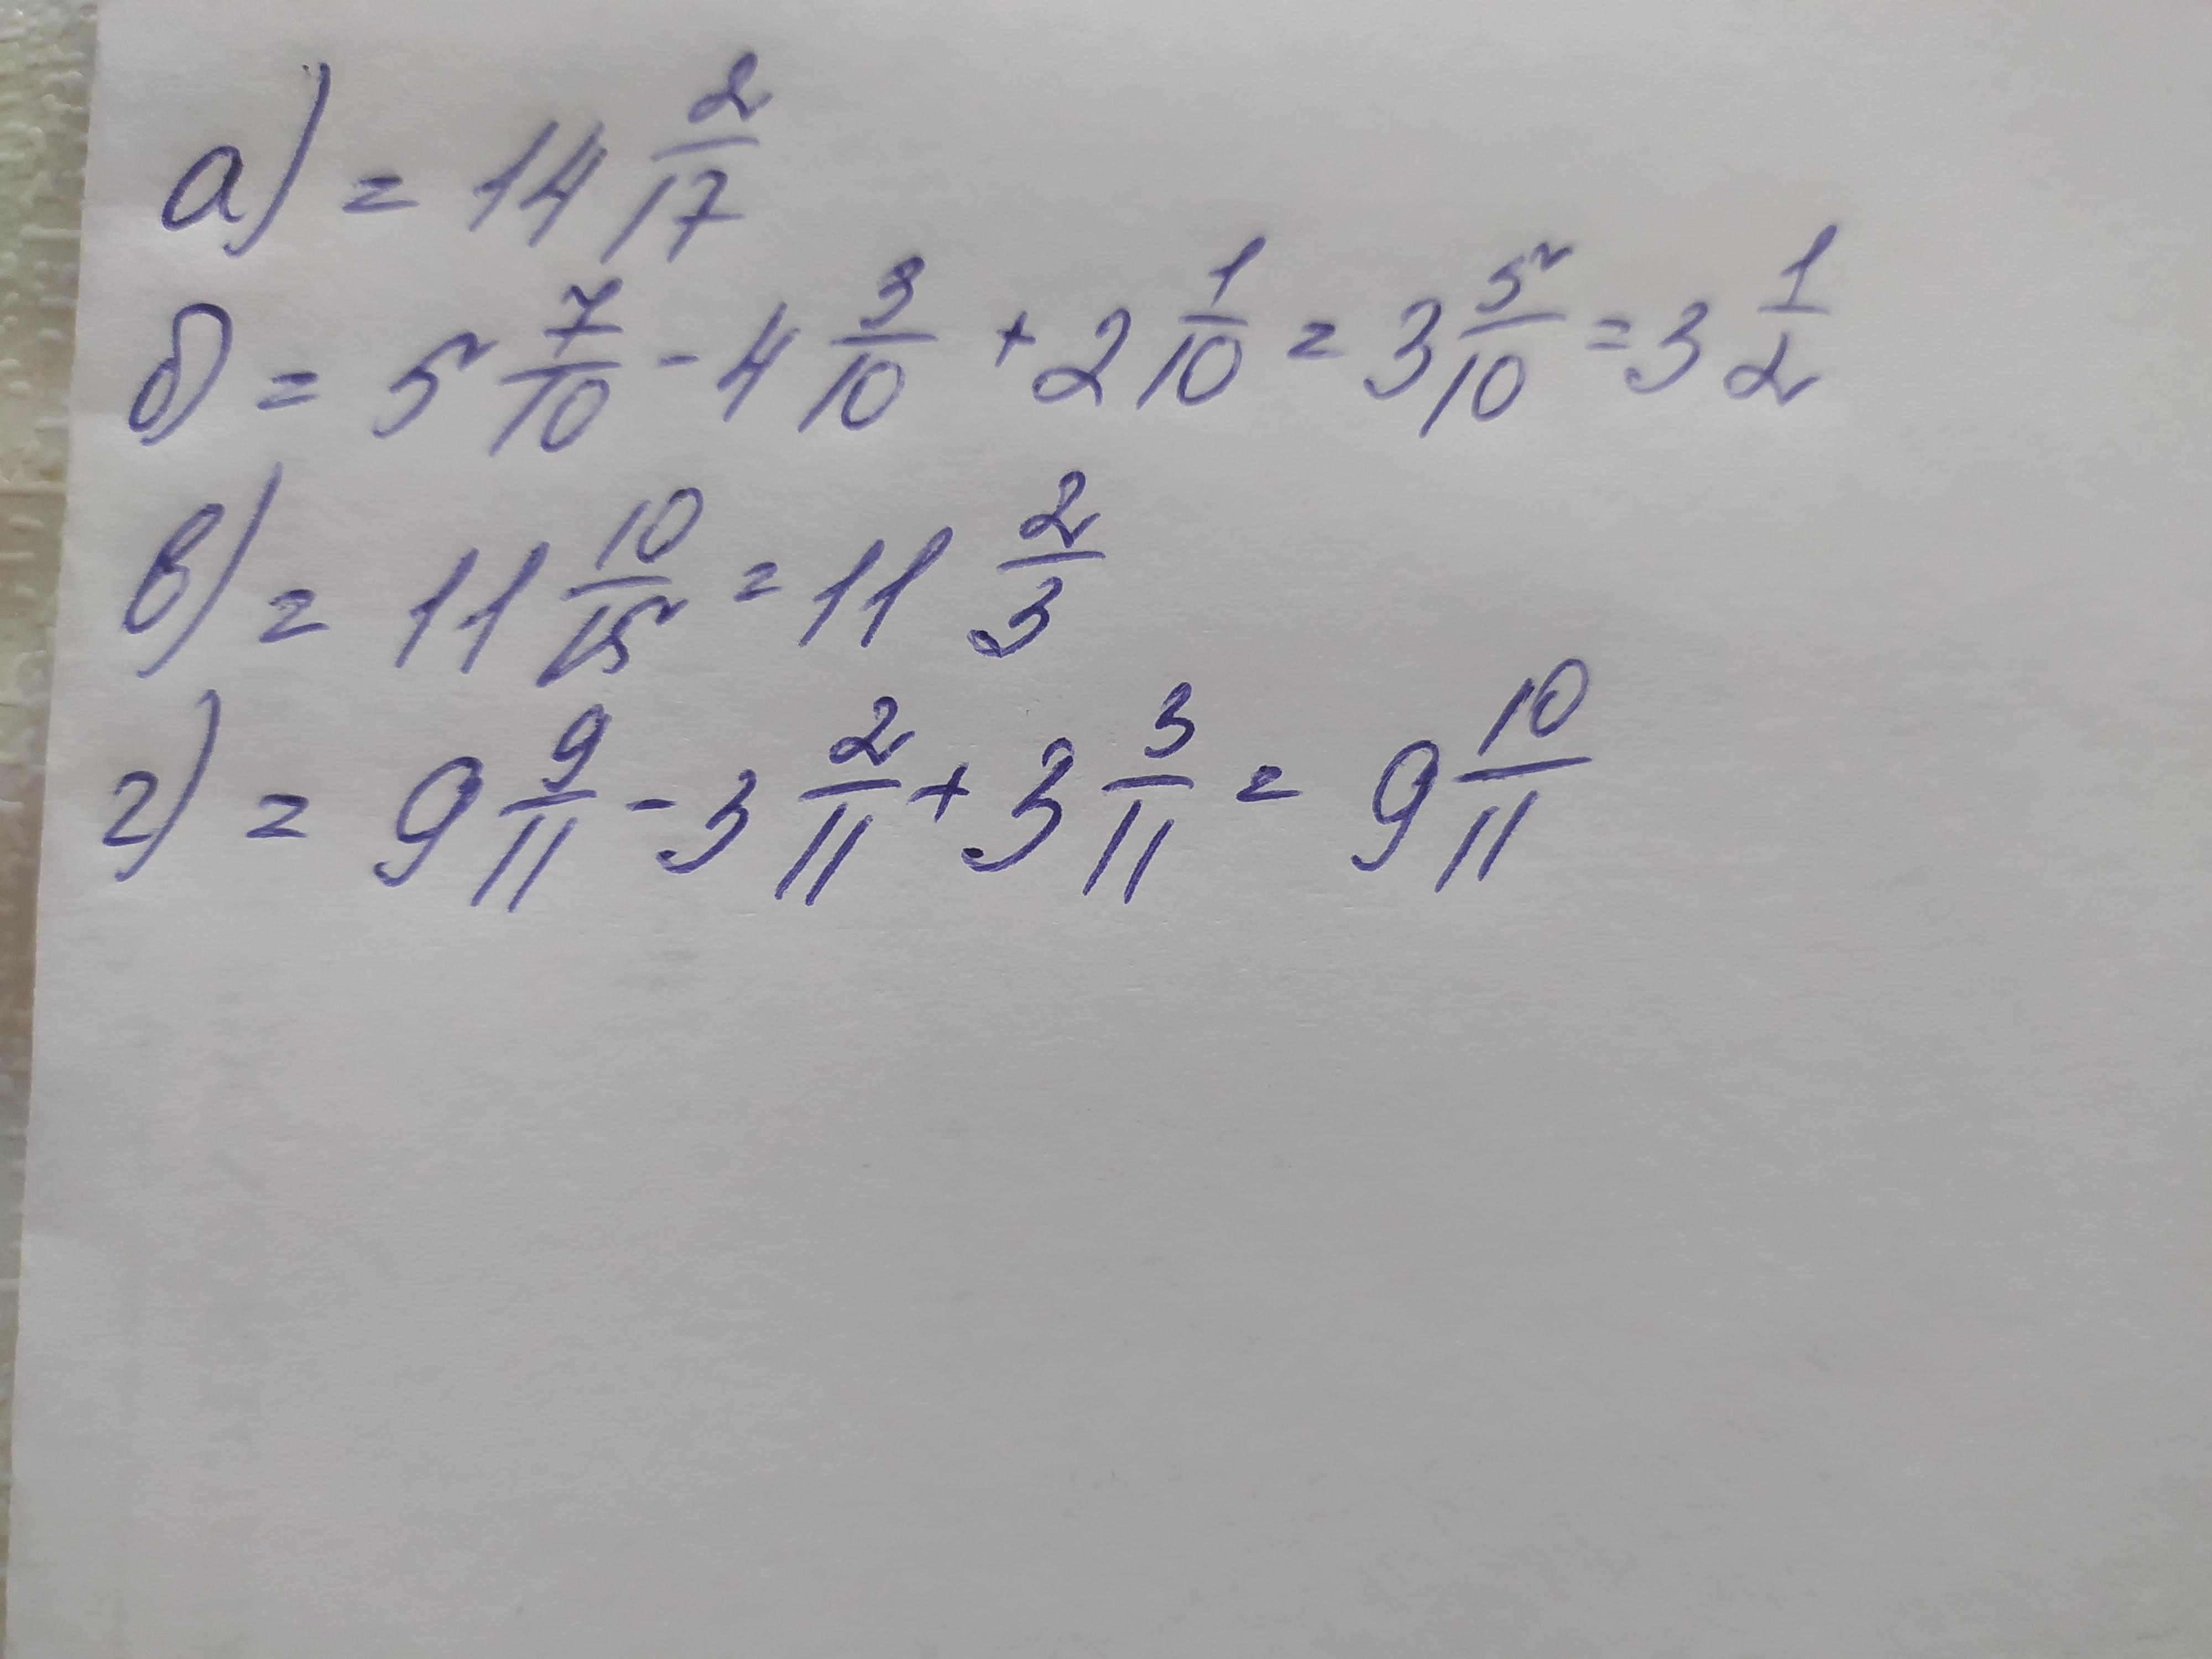 а) = 14 2/17
б) = 5 7/10 - 4 3/10 + 2 1/10 = 3 5/10 = 3 1/2
в) = 11 10/15 = 11 2/3
г) = 9 9/11 - 3 2/11 + 3 3/11 = 9 10/11